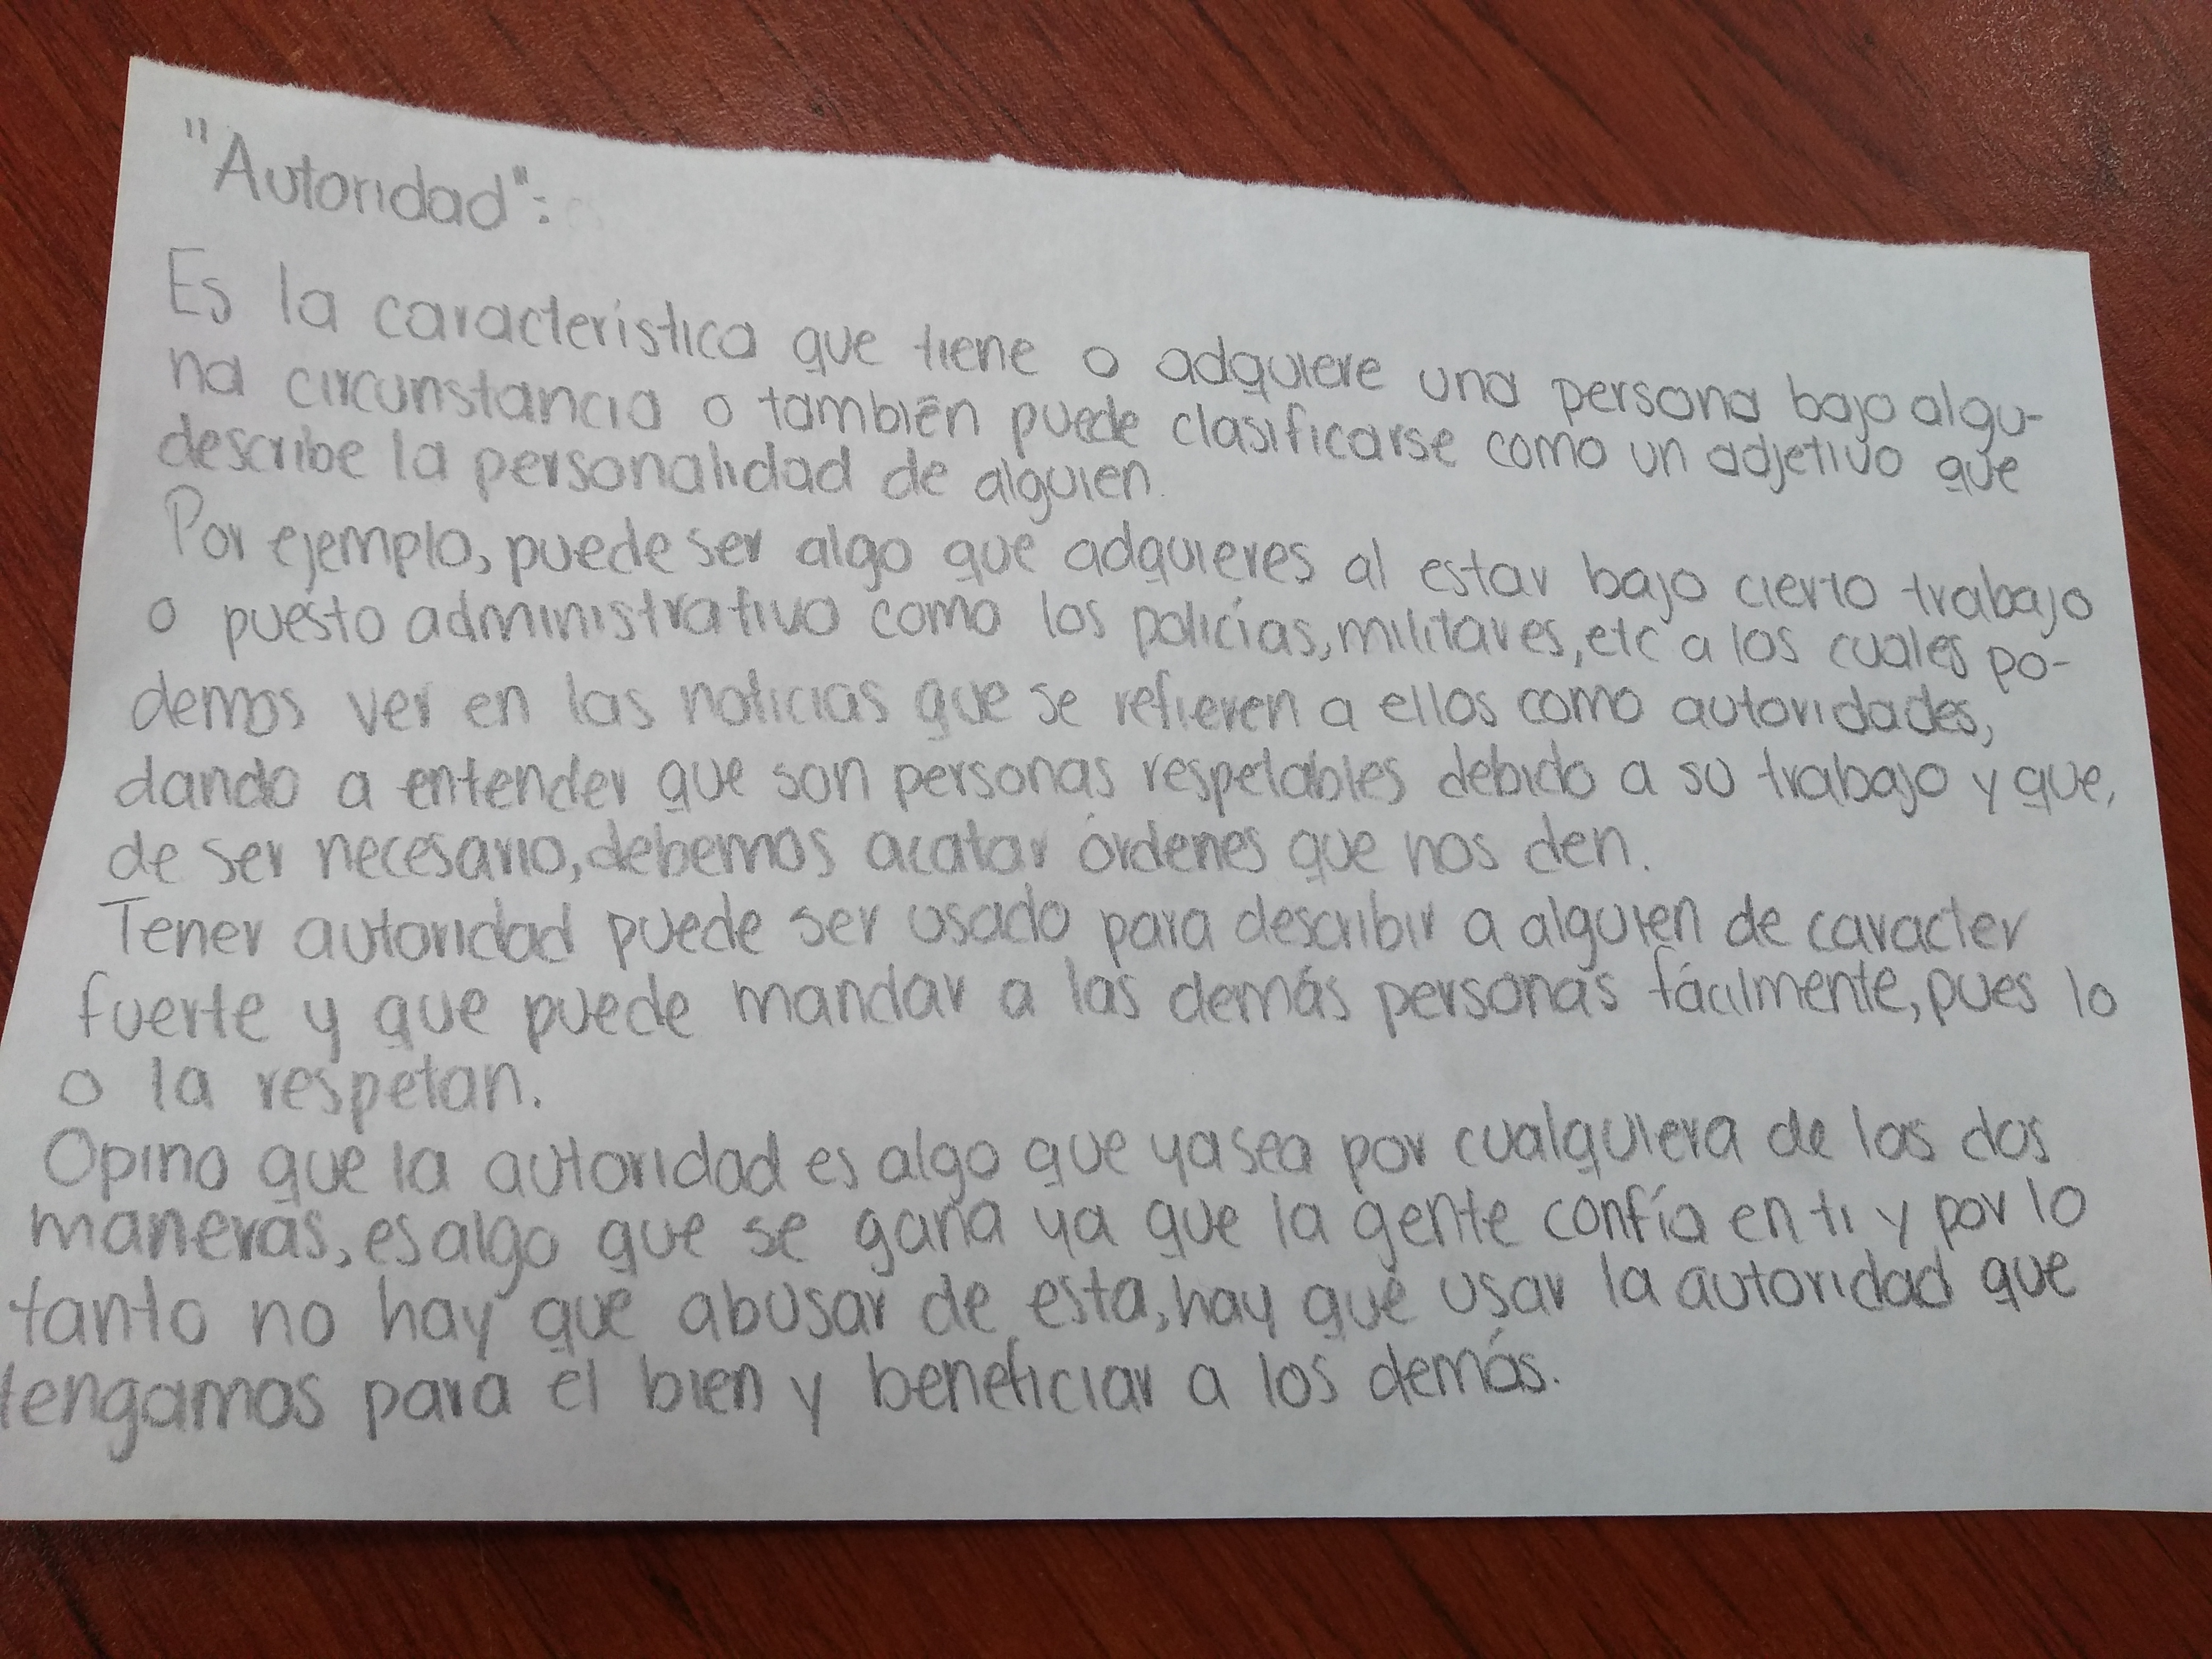 "Autoridad":
Es la característica que tiene o adquiere una persona bajo algu-
na circunstancia o también puede clasificarse como un adjetivo que
describe la personalidad de alguien.
Por ejemplo, puede ser algo que adquieres al estar bajo cierto trabajo
o puesto administrativo como los policías, militares, etc a los cuales po-
demos ver en las noticias que se refieren a ellos como autoridades,
dando a entender que son personas respetables debido a su trabajo y que,
de ser necesario, debemos acatar órdenes que nos den.
Tener autoridad puede ser usado para describir a alguien de caracter
fuerte y que puede mandar a las demás personas fácilmente, pues lo
o la respetan.
Opino que la autoridad es algo que ya sea por cualquiera de las dos
maneras, es algo que se gana ya que la gente confía en ti y por lo
tanto no hay que abusar de esta, hay que usar la autoridad que
tengamos para el bien y beneficiar a los demás.